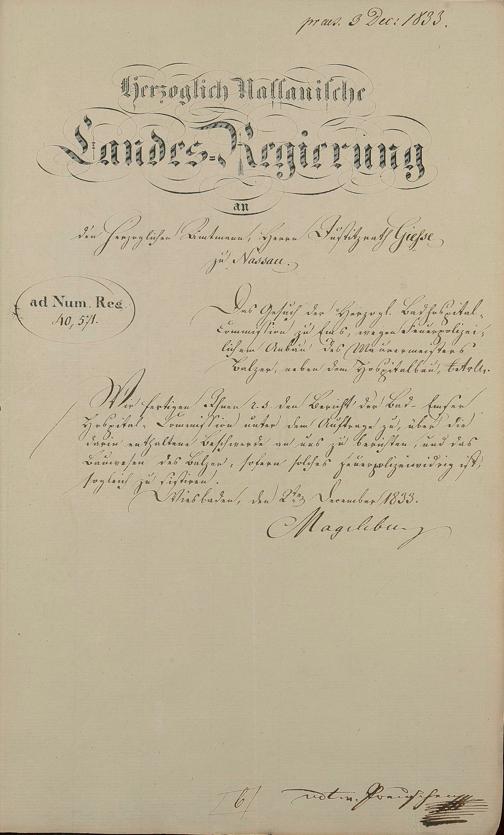 praes. 3 Dec: 1833.
Herzoglich Nassauische
Landes-Regierung
an
den Herzoglichen Amtmann, Herrn Justizrath Giesse
zu Nassau.
ad Num. Reg.
40,571.
Das Gesuch der Herzogl. Badhospital-
Commission zu Ems, wegen feuerpolizei-
lichem Anbau des Maurermeisters
Balzer, neben dem Hospitalbau, betr.
Wir fertigen Ihnen den Bericht der Bad-Emser
Hospital-Commission unter dem Auftrage zu, über die
darin enthaltene Beschwerde an uns zu berichten, und das
Bauwesen des Balzer, sofern solches feuerpolizeiwidrig ist,
sogleich zu sistiren.
Wiesbaden, den 2ten December 1833.
Magdeburg